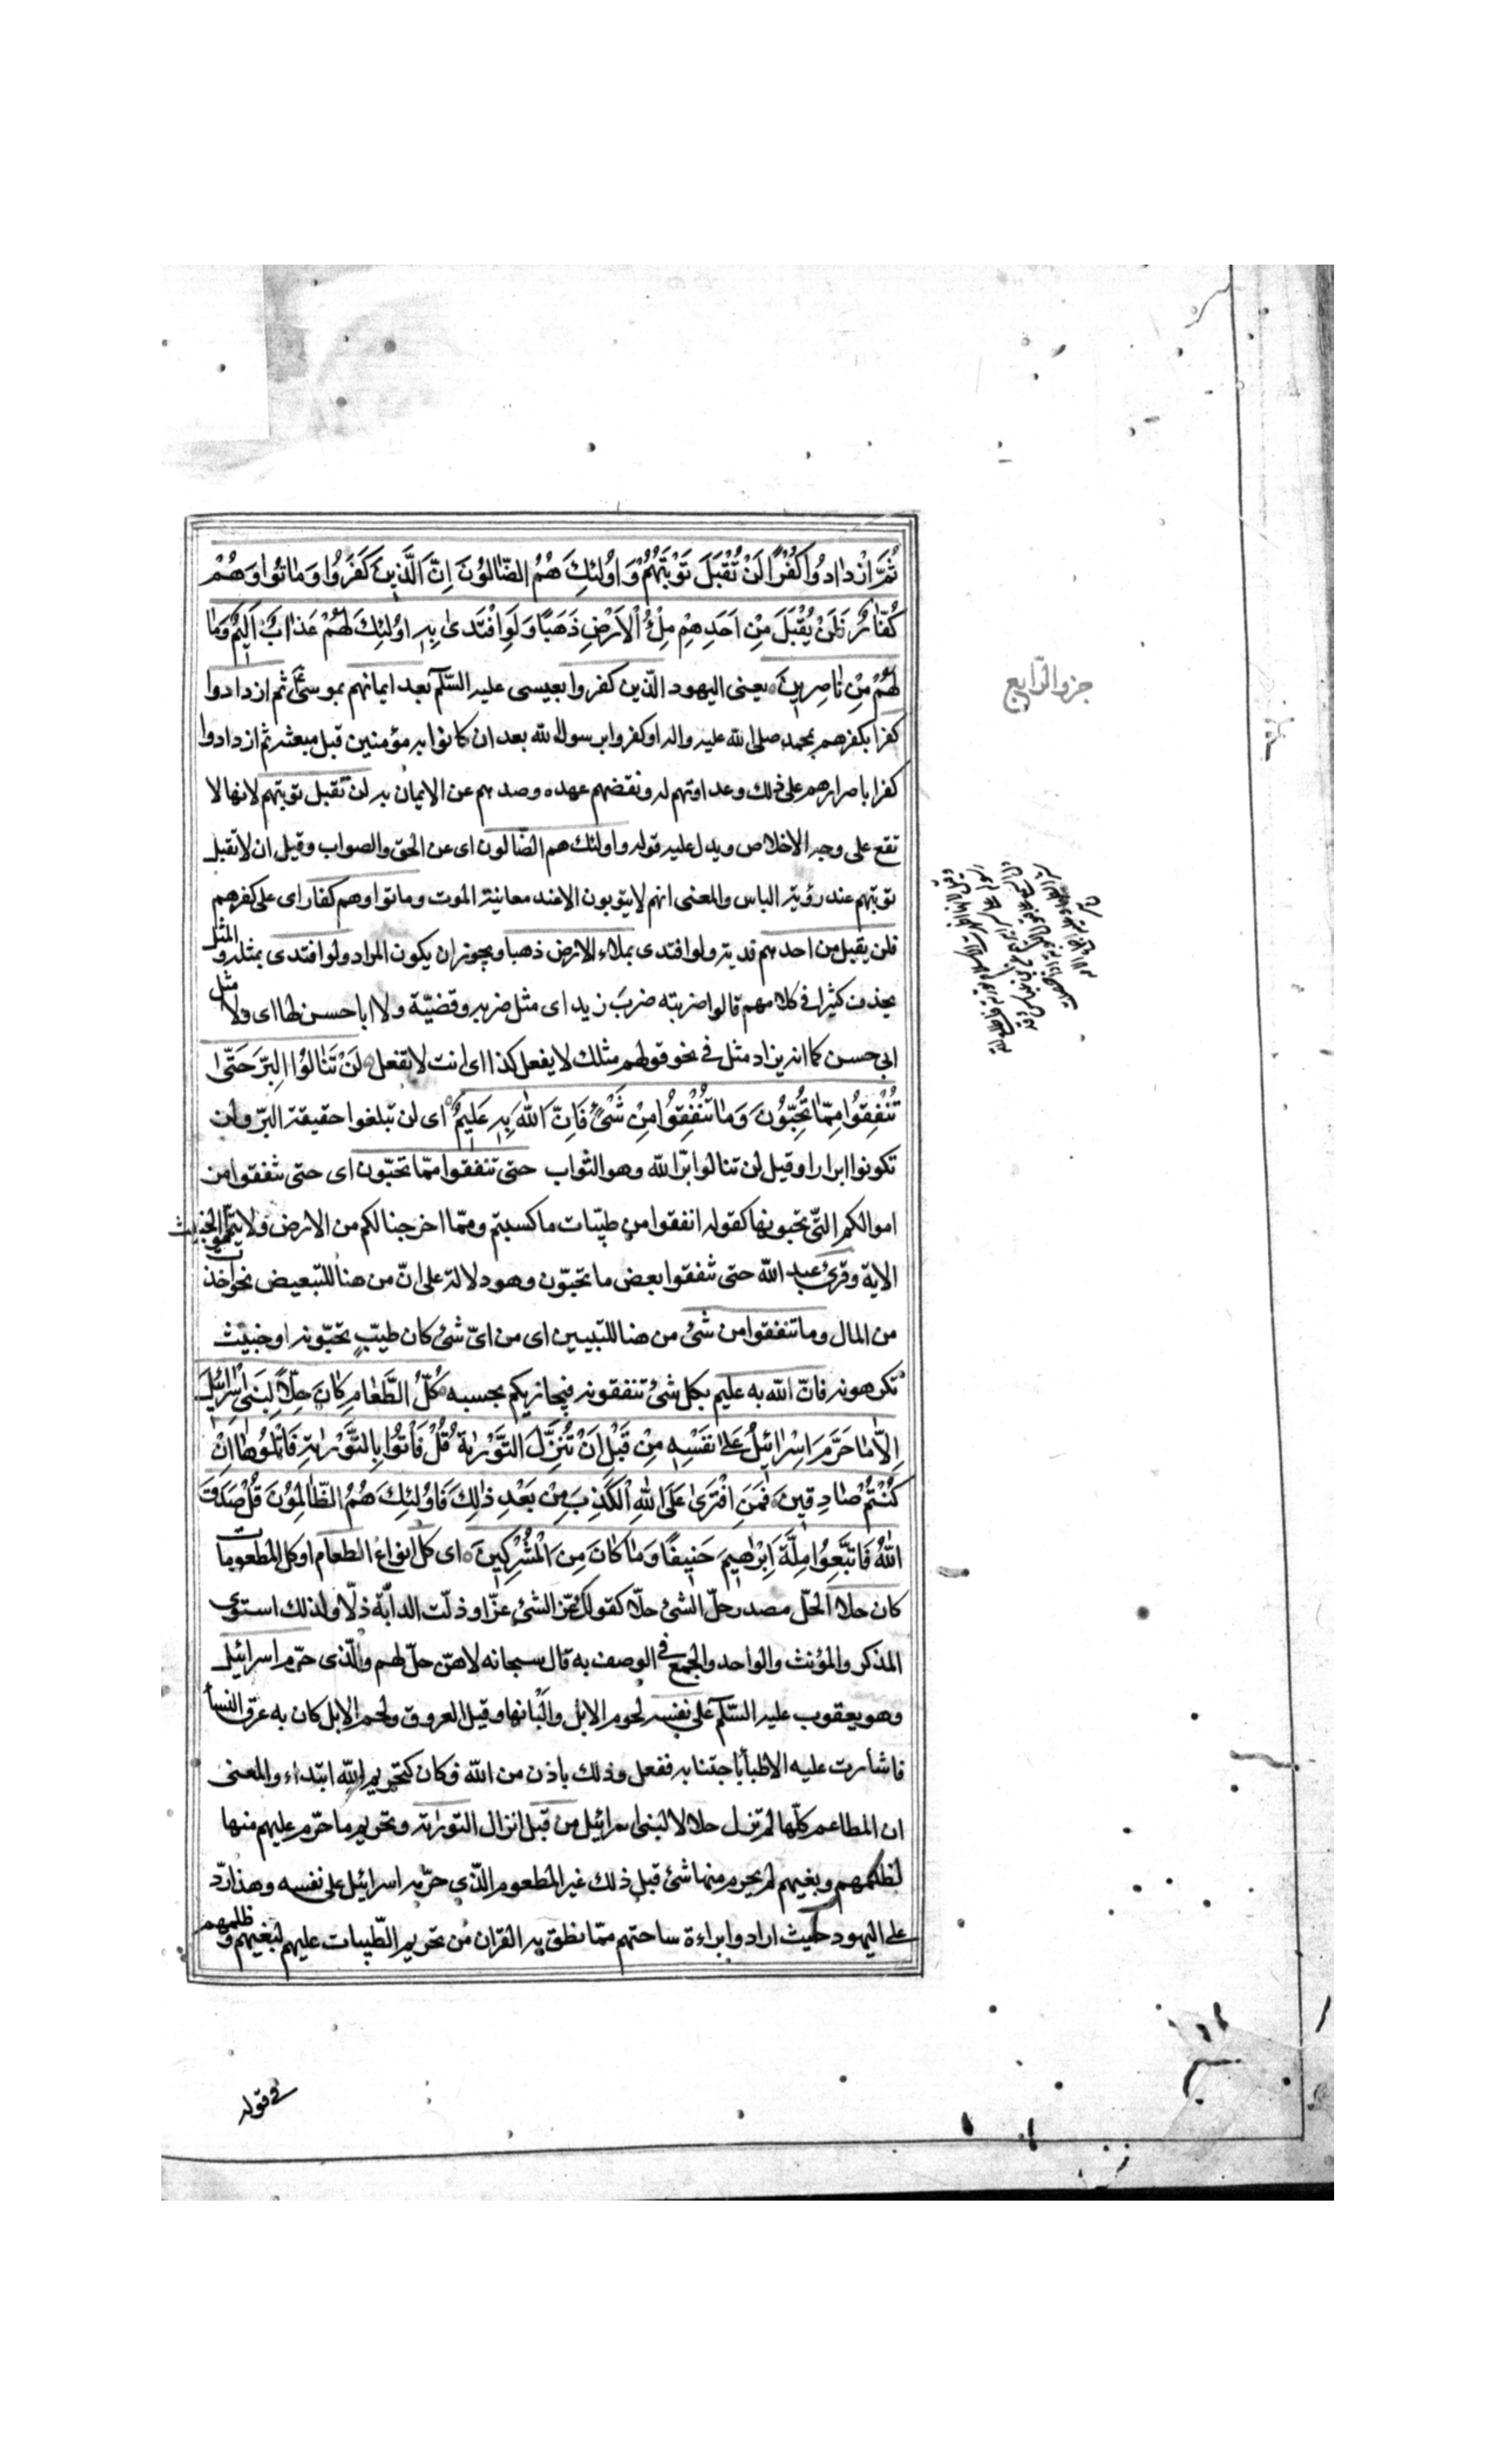 ثُمَّ ازْدادُوا كُفْرًا لَنْ تُقْبَلَ تَوْبَتُهُمْ وَاُولٰئِكَ هُمُ الضّالّوُنَ اِنَّ الَّذينَ كَفَرُوا وَماتوُا وَهُمْ
كُفّارٌ فَلَنْ يُقْبَلَ مِنْ اَحَدِهِمْ مِلْءُ الْاَرْضِ ذَهَبًا وَلَوِ افْتَدىٰ بِهِ اوُلٰئِكَ لَهُمْ عَذابٌ اَليمٌ وَما
لَهُمْ مِنْ ناصِرينَ يعنى اليهود الّذين كفروا بعيسى عليه السّلم بعد ايمانهم بموسى ثم ازدادوا
كفرا بكفرهم بمحمد صلى الله عليه واله او كفروا برسول الله بعد ان كانوا به مؤمنين قبل مبعثه ثم ازدادوا
كفرا باصرارهم على ذلك وعداوتهم له ونقضهم عهده وصدهم عن الايمان به لن تقبل توبتهم لانها لا
تقع على وجه الاخلاص ويدل عليه قوله واولئك هم الضّالون اى عن الحق والصواب وقيل ان لا تقبل
توبتهم عند رؤية الباس والمعنى انهم لا يتوبون الا عند معاينة الموت وماتوا وهم كفار اى على كفرهم
فلن يقبل من احدهم فدية ولو افتدى بملاء الارض ذهبا ويجوز ان يكون المراد ولو افتدى بمثله والمثل
يحذف كثيرا فى كلامهم قالوا ضربته ضربَ زيد اى مثل ضربه وقضيّة ولا ابا حسن لها اى ولا مثل
ابى حسن كما انه يزاد مثل فى نحو قولهم مثلك لا يفعل كذا اى انت لا تفعل لَنْ تَنالوُا الْبِرَّ حَتّىٰ
تُنْفِقوُا مِمّا تُحِبّوُنَ وَما تُنْفِقوُا مِنْ شَىْءٍ فَاِنَّ اللهَ بِهِ عَليمٌ اى لن تبلغوا حقيقة البرّ ولن
تكونوا ابرارا وقيل لن تنالوا برّ الله وهو الثواب حتى تنفقوا ممّا تحبّون اى حتى تنفقوا من
اموالكم التّى تحبونها كقوله انفقوا من طيّبات ما كسبتم وممّا اخرجنا لكم من الارض ولا تيمّموا الخبيث
الاية وقرئ عبد الله حتى تنفقوا بعض ما تحبّون وهو دلالة على انّ من هنا للتبعيض نحو اخذت
من المال وما تنفقوا من شئ من هنا للتبيين اى من اىّ شئ كان طيّبٍ تحبّونه او خبيث
تكرهونه فانّ الله به عليم بكل شئ تنفقونه فيجازيكم بحسبه كُلُّ الطَّعامِ كانَ حِلًّا لِبَنى اِسْرائيلَ
اِلّا ما حَرَّمَ اِسْرائيلُ عَلىٰ نَفْسِهِ مِنْ قَبْلِ اَنْ تُنَزَّلَ التَّوْرٰيةُ قُلْ فَأْتوُا بِالتَّوْرٰيةِ فَاتْلوُها اِنْ
كُنْتُمْ صادِقينَ فَمَنِ افْتَرىٰ عَلَى اللهِ الْكَذِبَ مِنْ بَعْدِ ذٰلِكَ فَاوُلٰئِكَ هُمُ الظّالِموُنَ قُلْ صَدَقَ
اللهُ فَاتَّبِعوُا مِلَّةَ اِبْرٰهيمَ حَنيفًا وَما كانَ مِنَ الْمُشْرِكينَ اى كل انواع الطعام او كل المطعومات
كان حلا الحلّ مصدر حلّ الشئ حلّا كقولك عزّ الشئ عزّا وذلّت الدابّة ذلّا ولذلك استوى
المذكر والمؤنث والواحد والجمع فى الوصف به قال سبحانه لا هنّ حلّ لهم والّذى حرّم اسرائيل
وهو يعقوب عليه السّلم على نفسه لحوم الابل والبانها وقيل العروق ولحم الابل كان به عرق النسا
فاشارت عليه الاطبأ باجتنابه ففعل وذلك باذن من الله فكان كتحريم الله ابتداء والمعنى
ان المطاعم كلّها لم تزل حلالا لبنى اسرائيل من قبل انزال التورٰية وتحريم ما حرّم عليهم منها
لظلمهم وبغيهم لم يحرم منها شئ قبل ذلك غير المطعوم الّذى حرّمه اسرائيل على نفسه وهذا ردّ
على اليهود حيث ارادوا براءة ساحتهم ممّا نطق به القران من تحريم الطّيبات عليهم لبغيهم وظلمهم
فى قوله
جزو الرّابع